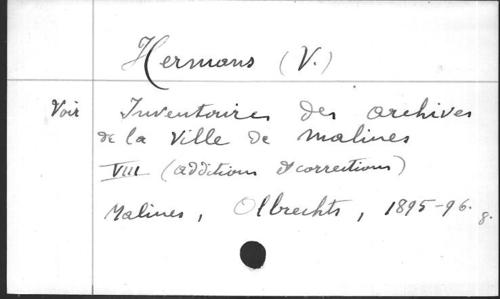 Hermans (V.)
Voir Inventaires des archives
de la Ville de Malines
VIII (additions & corrections)
Malines, Olbrechts, 1895-96.
8.